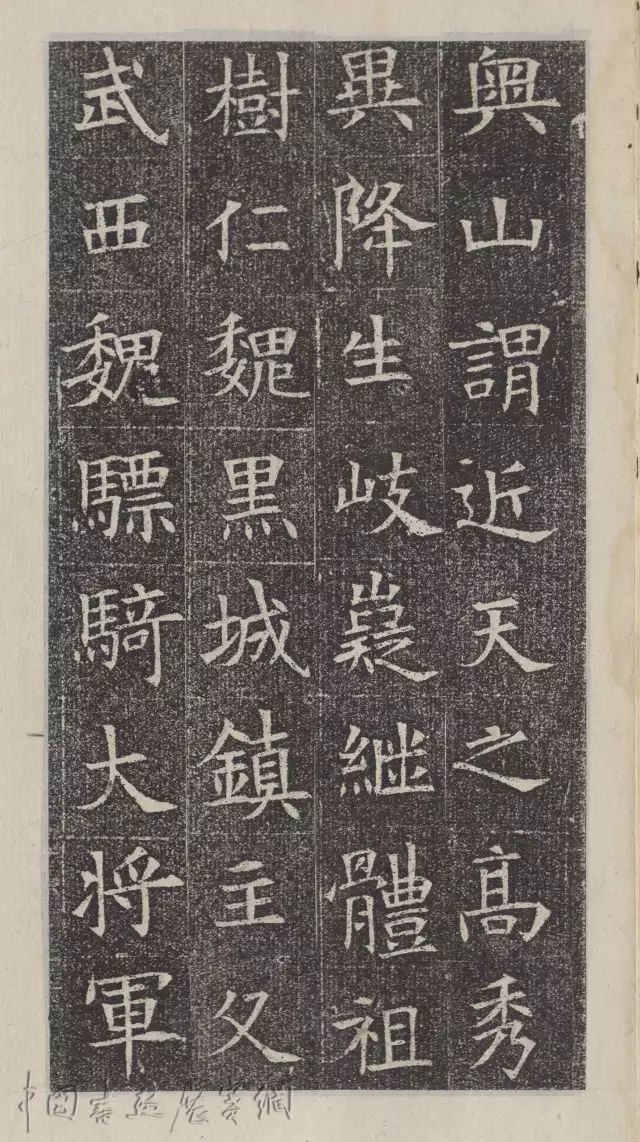 輿山謂近天之髙秀
異降生岐嶷継體祖
樹仁魏黒城鎮主父
武西魏驃騎大将軍
中國書法展賽網